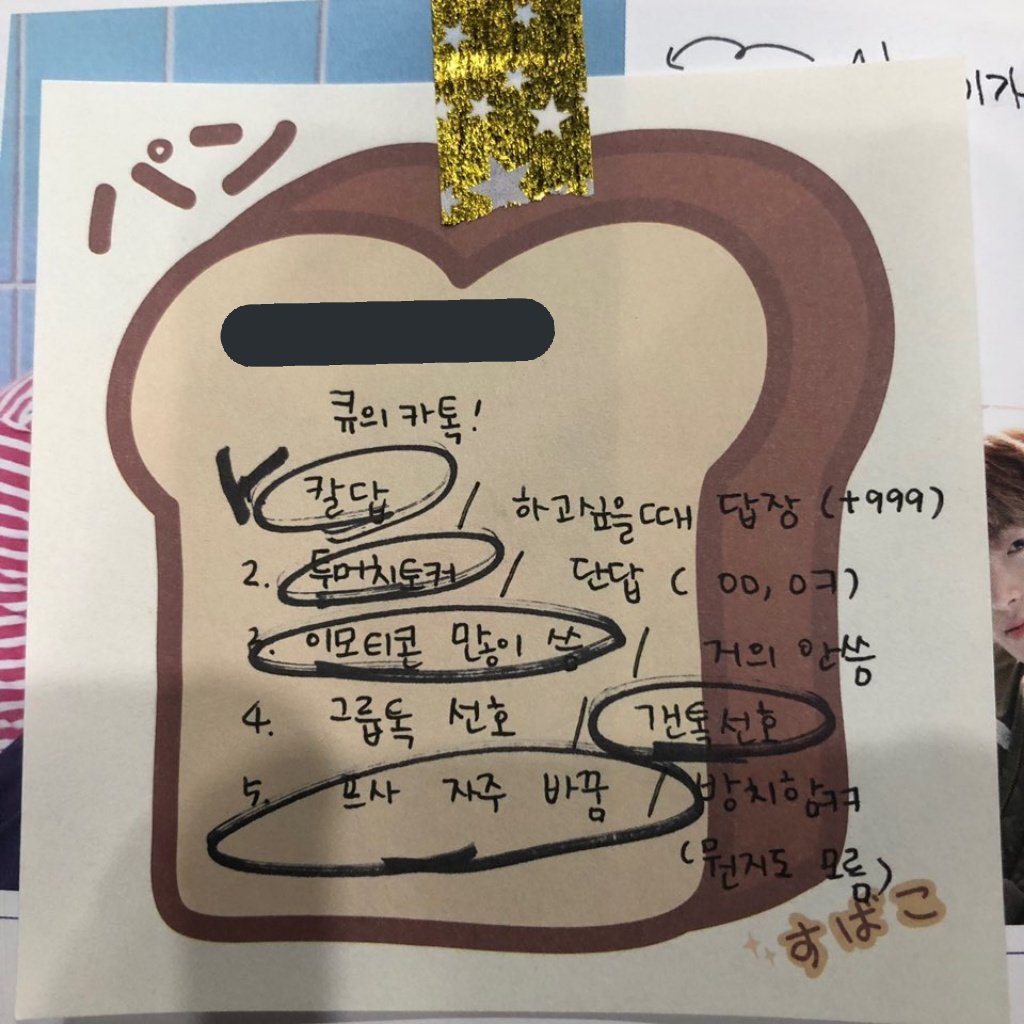 パン
이가
큐의 카톡!
칼답 / 하고싶을때 답장 (+999)
2. 투머치토커 / 단답 ( ㅇㅇ, ㅇㅋ)
3. 이모티콘 많이 씀 / 거의 안씀
4. 그룹톡 선호 / 갠톡선호
5. 프사 자주 바꿈 / 방치함ㅋㅋ
(뭔지도 모름)
すばこ